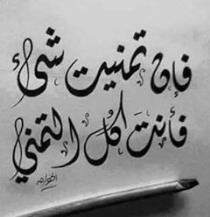 فإن تمنيت شئ
فأنت كل التمني